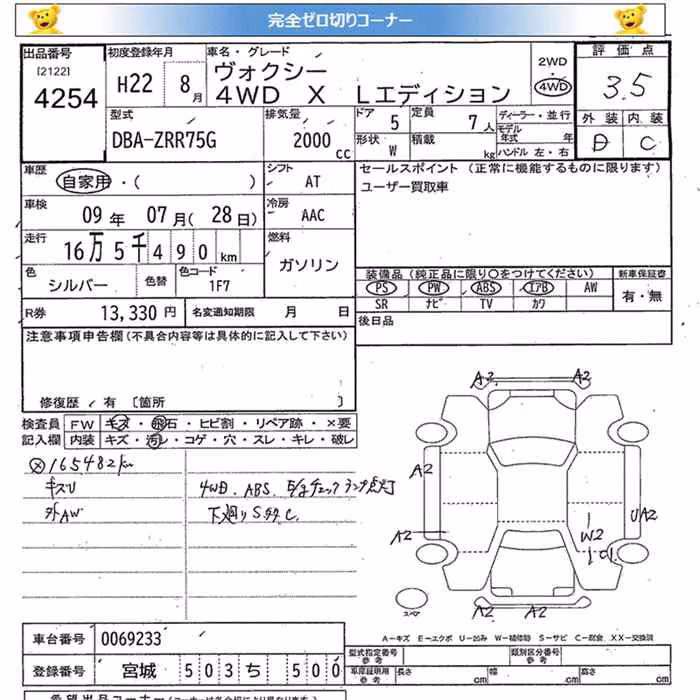 完全ゼロ切りコーナー
出品番号
[2122]
4254
初度登録年月
H22 8月
車名・グレード
ヴォクシー
4WD X Lエディション
2WD
・
4WD
評価点
3.5
外装 内装
D C
型式
DBA-ZRR75G
排気量
2000 cc
ドア 5
定員 7人
形状 W
積載 kg
ディーラー・並行
モデル年式 年
ハンドル 左・右
車歴
自家用・( )
シフト
AT
セールスポイント (正常に機能するものに限ります)
ユーザー買取車
車検
09年 07月(28日)
冷房
AAC
走行
16万5千490km
燃料
ガソリン
色
シルバー
色替
色コード
1F7
装備品(純正品に限り〇をつけてください)
新車保証書
PS PW ABS エアB AW
SR ナビ TV カワ
有・無
R券 13,330円
名変通知期限 月 日
後日品
注意事項申告欄(不具合内容等は具体的に記入して下さい)
修復歴 / 有 〔箇所 〕
検査員記入欄
FW キズ・飛石・ヒビ割・リペア跡・×要
内装 キズ・汚レ・コゲ・穴・スレ・キレ・破レ
165482km
キズU
外AW
4WD. ABS. E/gチェックランプ点灯
下廻りSサビC.
A2 A2
A2
A2
UA2
W2
C1
A2 A2
スペア
A-キズ E-エクボ U-凹み W-補修跡 S-サビ C-腐食 XX-交換済
車台番号 0069233
登録番号 宮城 503 ち 500
型式指定番号
参考
類別区分番号
参考
車庫証明用
参考
長さ cm 幅 cm 高さ cm
希望出品コーナー